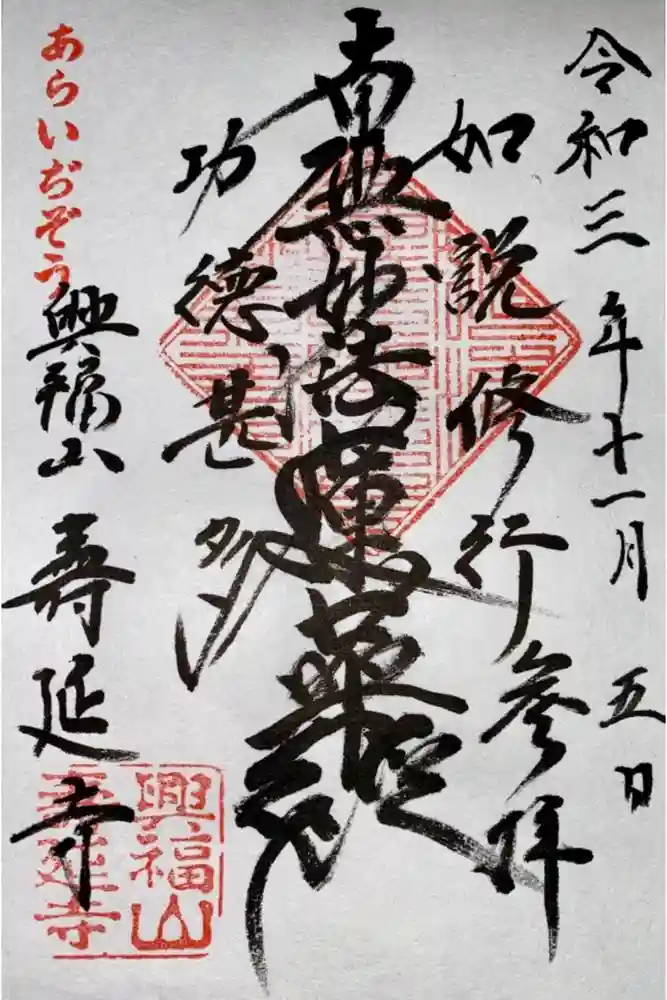 令和三年十一月五日
如説修行参拝
南無妙法蓮華経
功徳甚多
あらいぢぞう
興福山 寿延寺
興福山
寿延寺